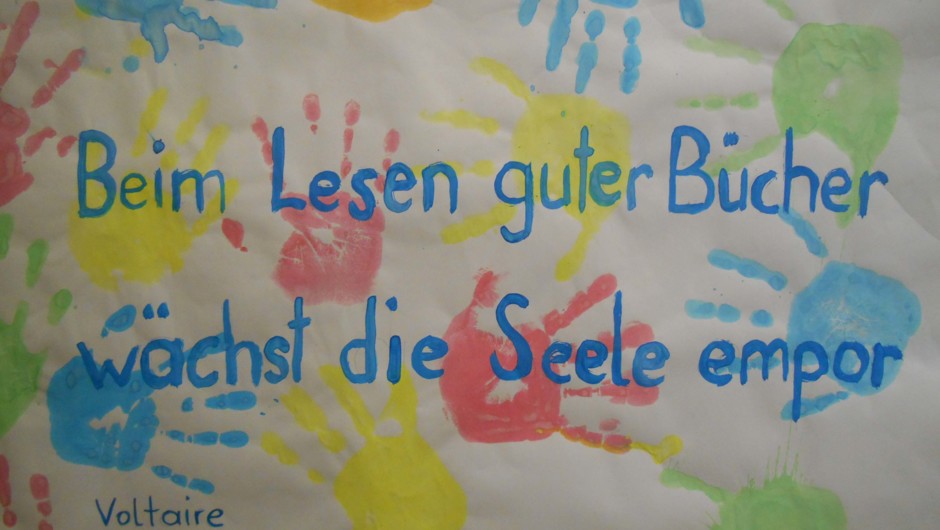 Beim Lesen guter Bücher
wächst die Seele empor
Voltaire